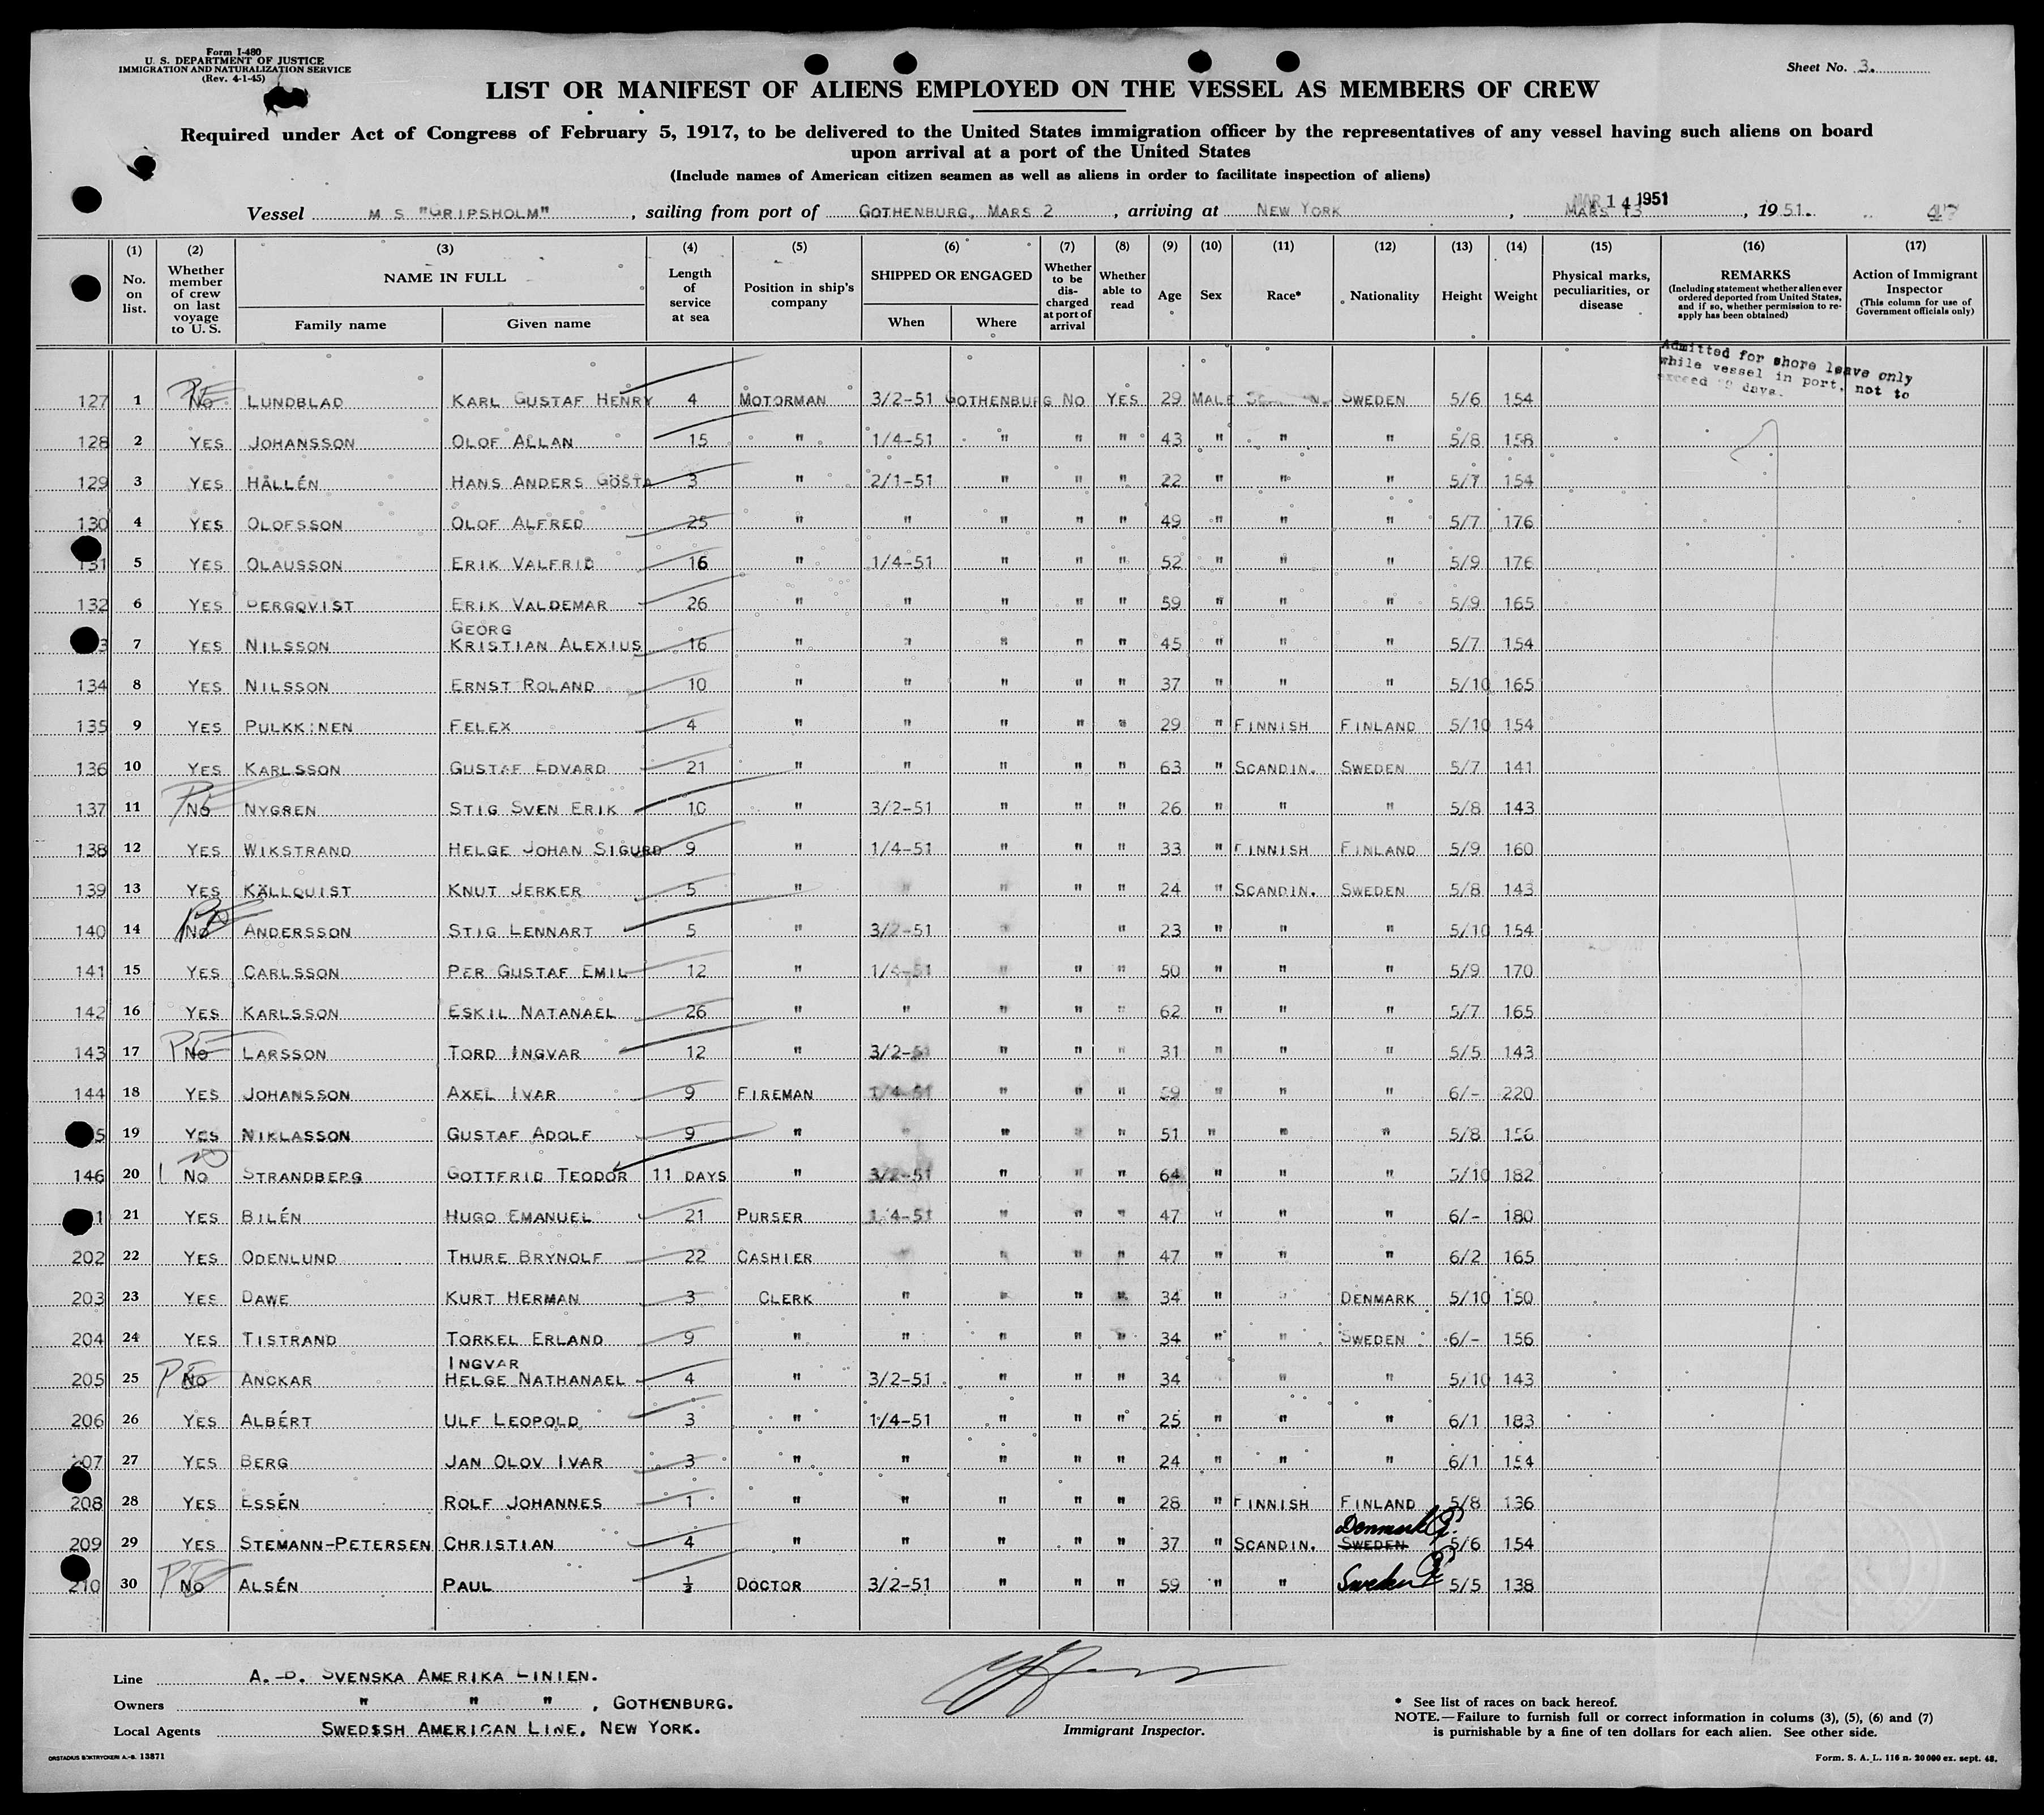 Form I-480
U. S. DEPARTMENT OF JUSTICE
IMMIGRATION AND NATURALIZATION SERVICE
(Rev. 4-1-45)
Sheet No. 3.
LIST OR MANIFEST OF ALIENS EMPLOYED ON THE VESSEL AS MEMBERS OF CREW
Required under Act of Congress of February 5, 1917, to be delivered to the United States immigration officer by the representatives of any vessel having such aliens on board
upon arrival at a port of the United States
(Include names of American citizen seamen as well as aliens in order to facilitate inspection of aliens)
MAR 14 1951
Vessel M S "GRIPSHOLM", sailing from port of GOTHENBURG, MARS 2, arriving at NEW YORK, MARS 13, 1951. 47
(1) No. on list. (2) Whether member of crew on last voyage to U. S. (3) NAME IN FULL Family name Given name (4) Length of service at sea (5) Position in ship's company (6) SHIPPED OR ENGAGED When Where (7) Whether to be discharged at port of arrival (8) Whether able to read (9) Age (10) Sex (11) Race* (12) Nationality (13) Height (14) Weight (15) Physical marks, peculiarities, or disease (16) REMARKS (Including statement whether alien ever ordered deported from United States, and if so, whether permission to reapply has been obtained) (17) Action of Immigrant Inspector (This column for use of Government officials only)
Admitted for shore leave only
while vessel in port, not to
exceed 29 days.
127 1 PE No LUNDBLAD KARL GUSTAF HENRY 4 MOTORMAN 3/2-51 GOTHENBURG NO YES 29 MALE SWEDEN 5/6 154
128 2 YES JOHANSSON OLOF ALLAN 15 " 1/4-51 " " " 43 " " " 5/8 158
129 3 YES HÅLLÉN HANS ANDERS GÖSTA 3 " 2/1-51 " " " 22 " " " 5/7 154
130 4 YES OLOFSSON OLOF ALFRED 25 " " " " " 49 " " " 5/7 176
131 5 YES OLAUSSON ERIK VALFRID 16 " 1/4-51 " " " 52 " " " 5/9 176
132 6 YES BERGQVIST ERIK VALDEMAR 26 " " " " " 59 " " " 5/9 165
GEORG
3 7 YES NILSSON KRISTIAN ALEXIUS 16 " " " " " 45 " " " 5/7 154
134 8 YES NILSSON ERNST ROLAND 10 " " " " " 37 " " " 5/10 165
135 9 YES PULKKINEN FELEX 4 " " " " " 29 " FINNISH FINLAND 5/10 154
136 10 YES KARLSSON GUSTAF EDVARD 21 " " " " " 63 " SCANDIN. SWEDEN 5/7 141
137 11 PE No NYGREN STIG SVEN ERIK 10 " 3/2-51 " " " 26 " " " 5/8 143
138 12 YES WIKSTRAND HELGE JOHAN SIGURD 9 " 1/4-51 " " " 33 " FINNISH FINLAND 5/9 160
139 13 YES KÄLLQUIST KNUT JERKER 5 " " " " " 24 " SCANDIN. SWEDEN 5/8 143
140 14 PE No ANDERSSON STIG LENNART 5 " 3/2-51 " " 23 " " " 5/10 154
141 15 YES CARLSSON PER GUSTAF EMIL 12 " 1/4-51 " " " 50 " " " 5/9 170
142 16 YES KARLSSON ESKIL NATANAEL 26 " " " " " 62 " " " 5/7 165
143 17 PE No LARSSON TORD INGVAR 12 " 3/2-51 " " " 31 " " " 5/5 143
144 18 YES JOHANSSON AXEL IVAR 9 FIREMAN 1/4-51 " " " 59 " " " 6/- 220
5 19 YES NIKLASSON GUSTAF ADOLF 9 " " " " " 51 " " " 5/8 156
146 20 No STRANDBERG GOTTFRID TEODOR 11 DAYS " 3/2-51 " " " 64 " " " 5/10 182
1 21 YES BILÉN HUGO EMANUEL 21 PURSER 1/4-51 " " " 47 " " " 6/- 180
202 22 YES ODENLUND THURE BRYNOLF 22 CASHIER " " " " 47 " " " 6/2 165
203 23 YES DAWE KURT HERMAN 3 CLERK " " " " 34 " " DENMARK 5/10 150
204 24 YES TISTRAND TORKEL ERLAND 9 " " " " " 34 " " SWEDEN 6/- 156
INGVAR
205 25 PE No ANCKAR HELGE NATHANAEL 4 " 3/2-51 " " " 34 " " " 5/10 143
206 26 YES ALBÉRT ULF LEOPOLD 3 " 1/4-51 " " " 25 " " " 6/1 183
207 27 YES BERG JAN OLOV IVAR 3 " " " " " 24 " " " 6/1 154
208 28 YES ESSÉN ROLF JOHANNES 1 " " " " " 28 " FINNISH FINLAND 5/8 136
Denmark
209 29 YES STEMANN-PETERSEN CHRISTIAN 4 " " " " " 37 " SCANDIN. SWEDEN 5/6 154
210 30 PE No ALSÉN PAUL ½ DOCTOR 3/2-51 " " " 59 " " Sweden 5/5 138
Line A.-B. SVENSKA AMERIKA LINIEN.
Owners " " ", GOTHENBURG.
Local Agents SWEDSSH AMERICAN LINE, NEW YORK.
Immigrant Inspector.
* See list of races on back hereof.
NOTE.—Failure to furnish full or correct information in colums (3), (5), (6) and (7)
is punishable by a fine of ten dollars for each alien. See other side.
ORSTADIUS BOKTRYCKERI A.-B. 13871
Form. S. A. L. 116 n. 20000 ex. sept. 48.